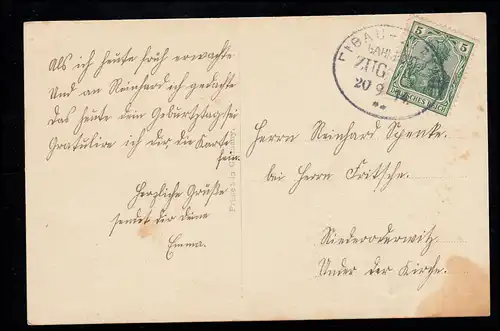 Als ich heute früh erwachte
Und an Reinhard ich gedachte
Das heute dein Geburtstag sei
Gratulire ich dir die Karte
fein
Herzliche Grüße
sendet dir deine
Emma.
BAHNPOST
ZUG
20 9 14
5 5
DEUTSCHES REICH
Herrn Reinhard Spenke.
bei Herrn Fritsche.
Niederoderwitz
Unter der Kirche.